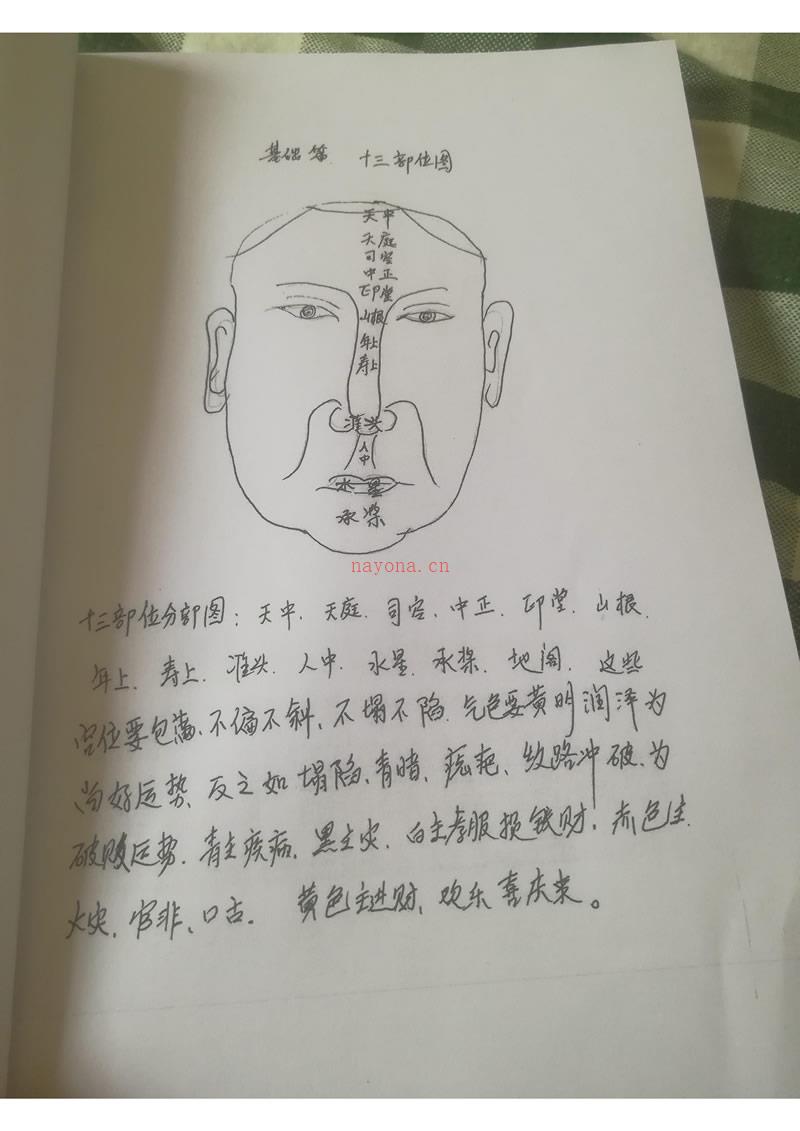 基础篇 十三部位图
天中
天庭
司空
中正
印堂
山根
年上
寿上
准头
人中
水星
承浆
nayona.cn
十三部位分部图：天中、天庭、司空、中正、印堂、山根、
年上、寿上、准头、人中、水星、承浆、地阁、这些
宫位要包满、不偏不斜、不塌不陷、气色要黄明润泽为
尚好运势、反之如塌陷、青暗、疤、纹路冲破、为
破败运势、青主疾病、黑主灾、白主孝服损钱财、赤色主
火灾、官非、口舌。 黄色主进财、欢乐喜庆来。